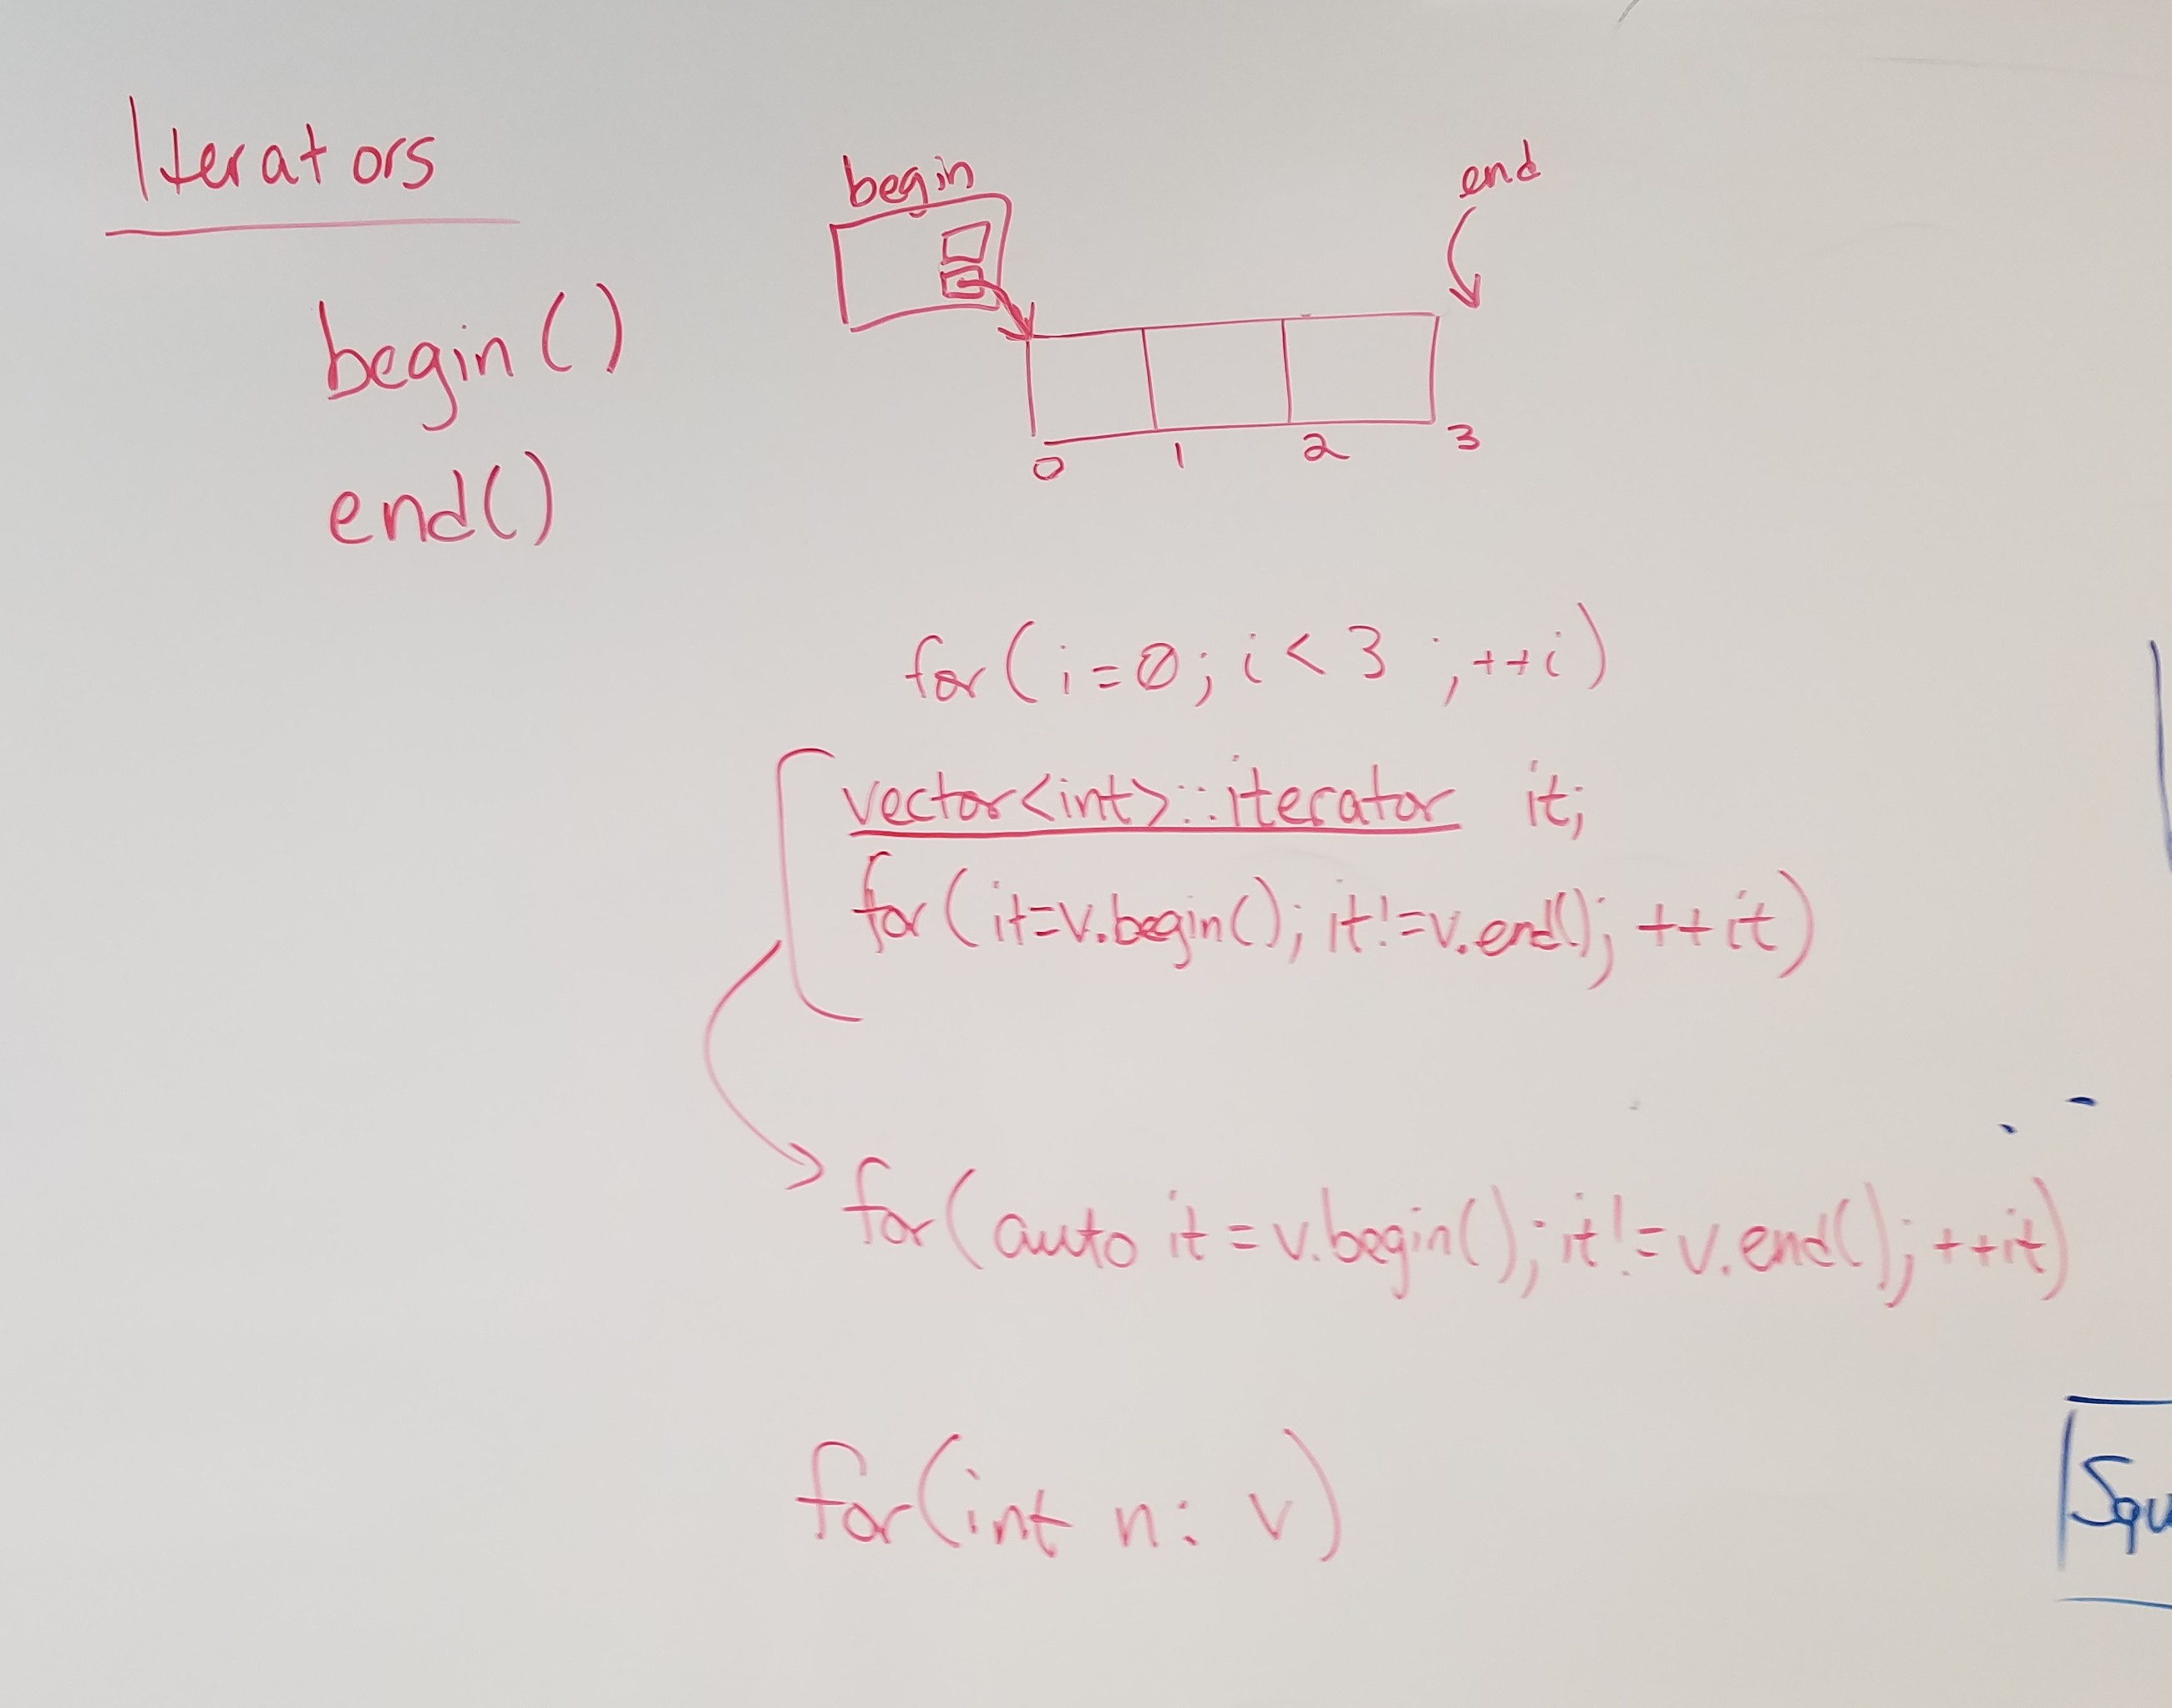 Iterators
begin()
end()
begin
end
0 1 2 3
for(i=0; i<3 ;++i)
vector<int>::iterator it;
for(it=v.begin(); it!=v.end(); ++it)
for(auto it=v.begin(); it!=v.end(); ++it)
for(int n: v)
Squ